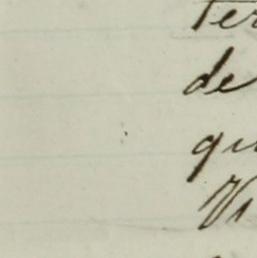 ter
de
qu
Vi